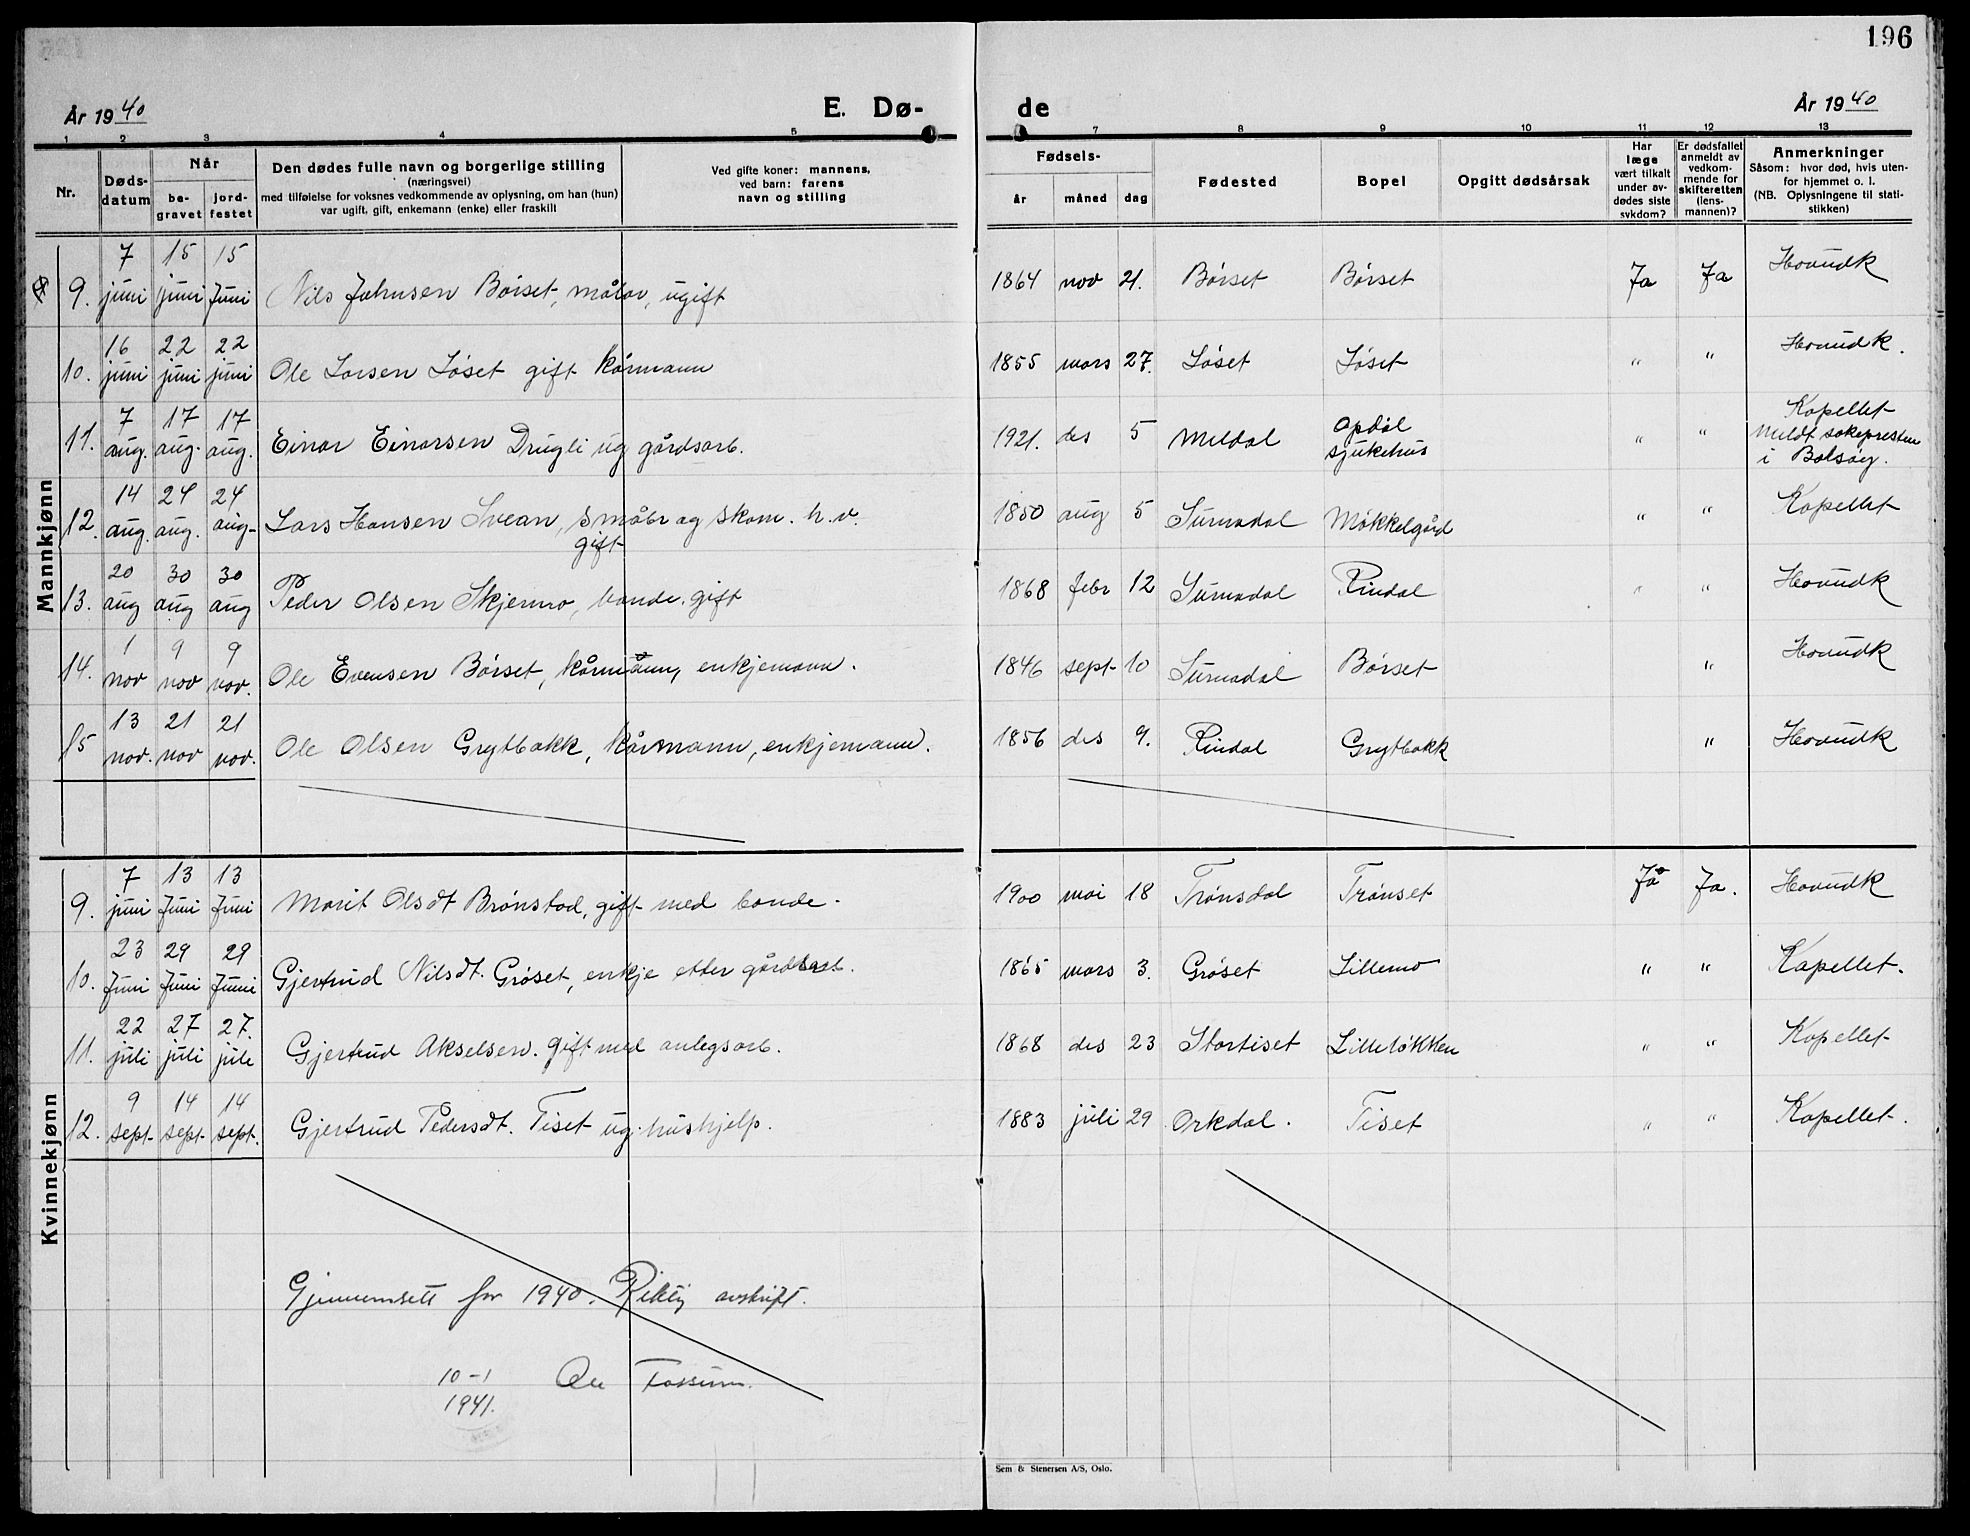 196
År 1940
E. Dø-
de
År 1940
1 2 3 4 5 7 8 9 10 11 12 13
Nr.
Døds-
datum
Når
be-
gravet
jord-
festet
Den dødes fulle navn og borgerlige stilling
(næringsvei)
med tilføielse for voksnes vedkommende av oplysning, om han (hun)
var ugift, gift, enkemann (enke) eller fraskilt
Ved gifte koner: mannens,
ved barn: farens
navn og stilling
Fødsels-
år måned dag
Fødested
Bopel
Opgitt dødsårsak
Har
læge
vært tilkalt
under av-
dødes siste
sykdom?
Er dødsfallet
anmeldt av
vedkom-
mende for
skifteretten
(lens-
mannen)?
Anmerkninger
Såsom: hvor død, hvis uten-
for hjemmet o. l.
(NB. Oplysningene til stati-
stikken)
Mannkjønn
9. 7 juni 15 juni 15 Juni Nils Johnsen Børset, målar, ugift 1864 nov 21. Børset Børset Ja Ja Hovudk
10. 16 juni 22 juni 22 juni Ole Larsen Løset gift kårmann 1855 mars 27. Løset Løset " " Hovudk.
11. 7 aug. 17 aug. 17 aug. Einar Einarsen Drugli ug gårdsarb. 1921. des 5 Meldal Opdal sjukehus " " Kapellet
Meldt sokepresten
i Bolsøy.
12. 14 aug. 24 aug. 24 aug- Lars Hansen Svean, småbr og skom. h. v.
gift 1850 aug 5 Surnadal Møkkelgård " " Kapellet
13. 20 aug 30 aug 30 aug Peder Olsen Skjermo, bonde. gift 1868 febr 12 Surnadal Rindal " " Hovudk
14. 1 nov 9 nov 9 nov. Ole Evensen Børset, kårmann, enkjemann. 1846 sept 10 Surnadal Børset " Hovudk
15 13 nov. 21 nov 21 nov. Ole Olsen Grytbakk, kårmann, enkjemann. 1856 des 9. Rindal Grytbakk " Hovudk
Kvinnekjønn
9. 7 juni 13 Juni 13 Juni Marit Olsdt Brønstad, gift med bonde. 1900 mai 18 Trønsdal Trønset Ja Ja. Hovudk
10. 23 Juni 29 Juni 29 Juni Gjertrud Nilsdt. Grøset, enkje etter gårdbr. 1865 mars 3. Grøset Lillemo " " Kapellet.
11. 22 juli 27 juli 27. jule Gjertrud Akselsen. gift med anlegsarb. 1868 des 23 Stortiset Lilleløkken " " Kapellet
12. 9 sept. 14 sept. 14 sept. Gjertrud Pedersdt. Tiset ug. hushjelp. 1883 juli 29 Orkdal. Tiset " " Kapellet.
Gjennemsett for 1940. Riktig avskrift.
10-1
1941.
Ole Fossum.
Sem & Stenersen A/S, Oslo.